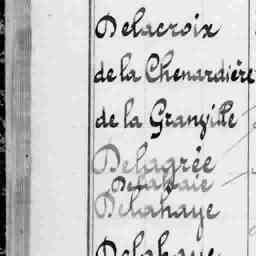 Delacroix
de la Chenardière
de la Granville
Delagrée
Delahaie
Delahaye
Delahaye